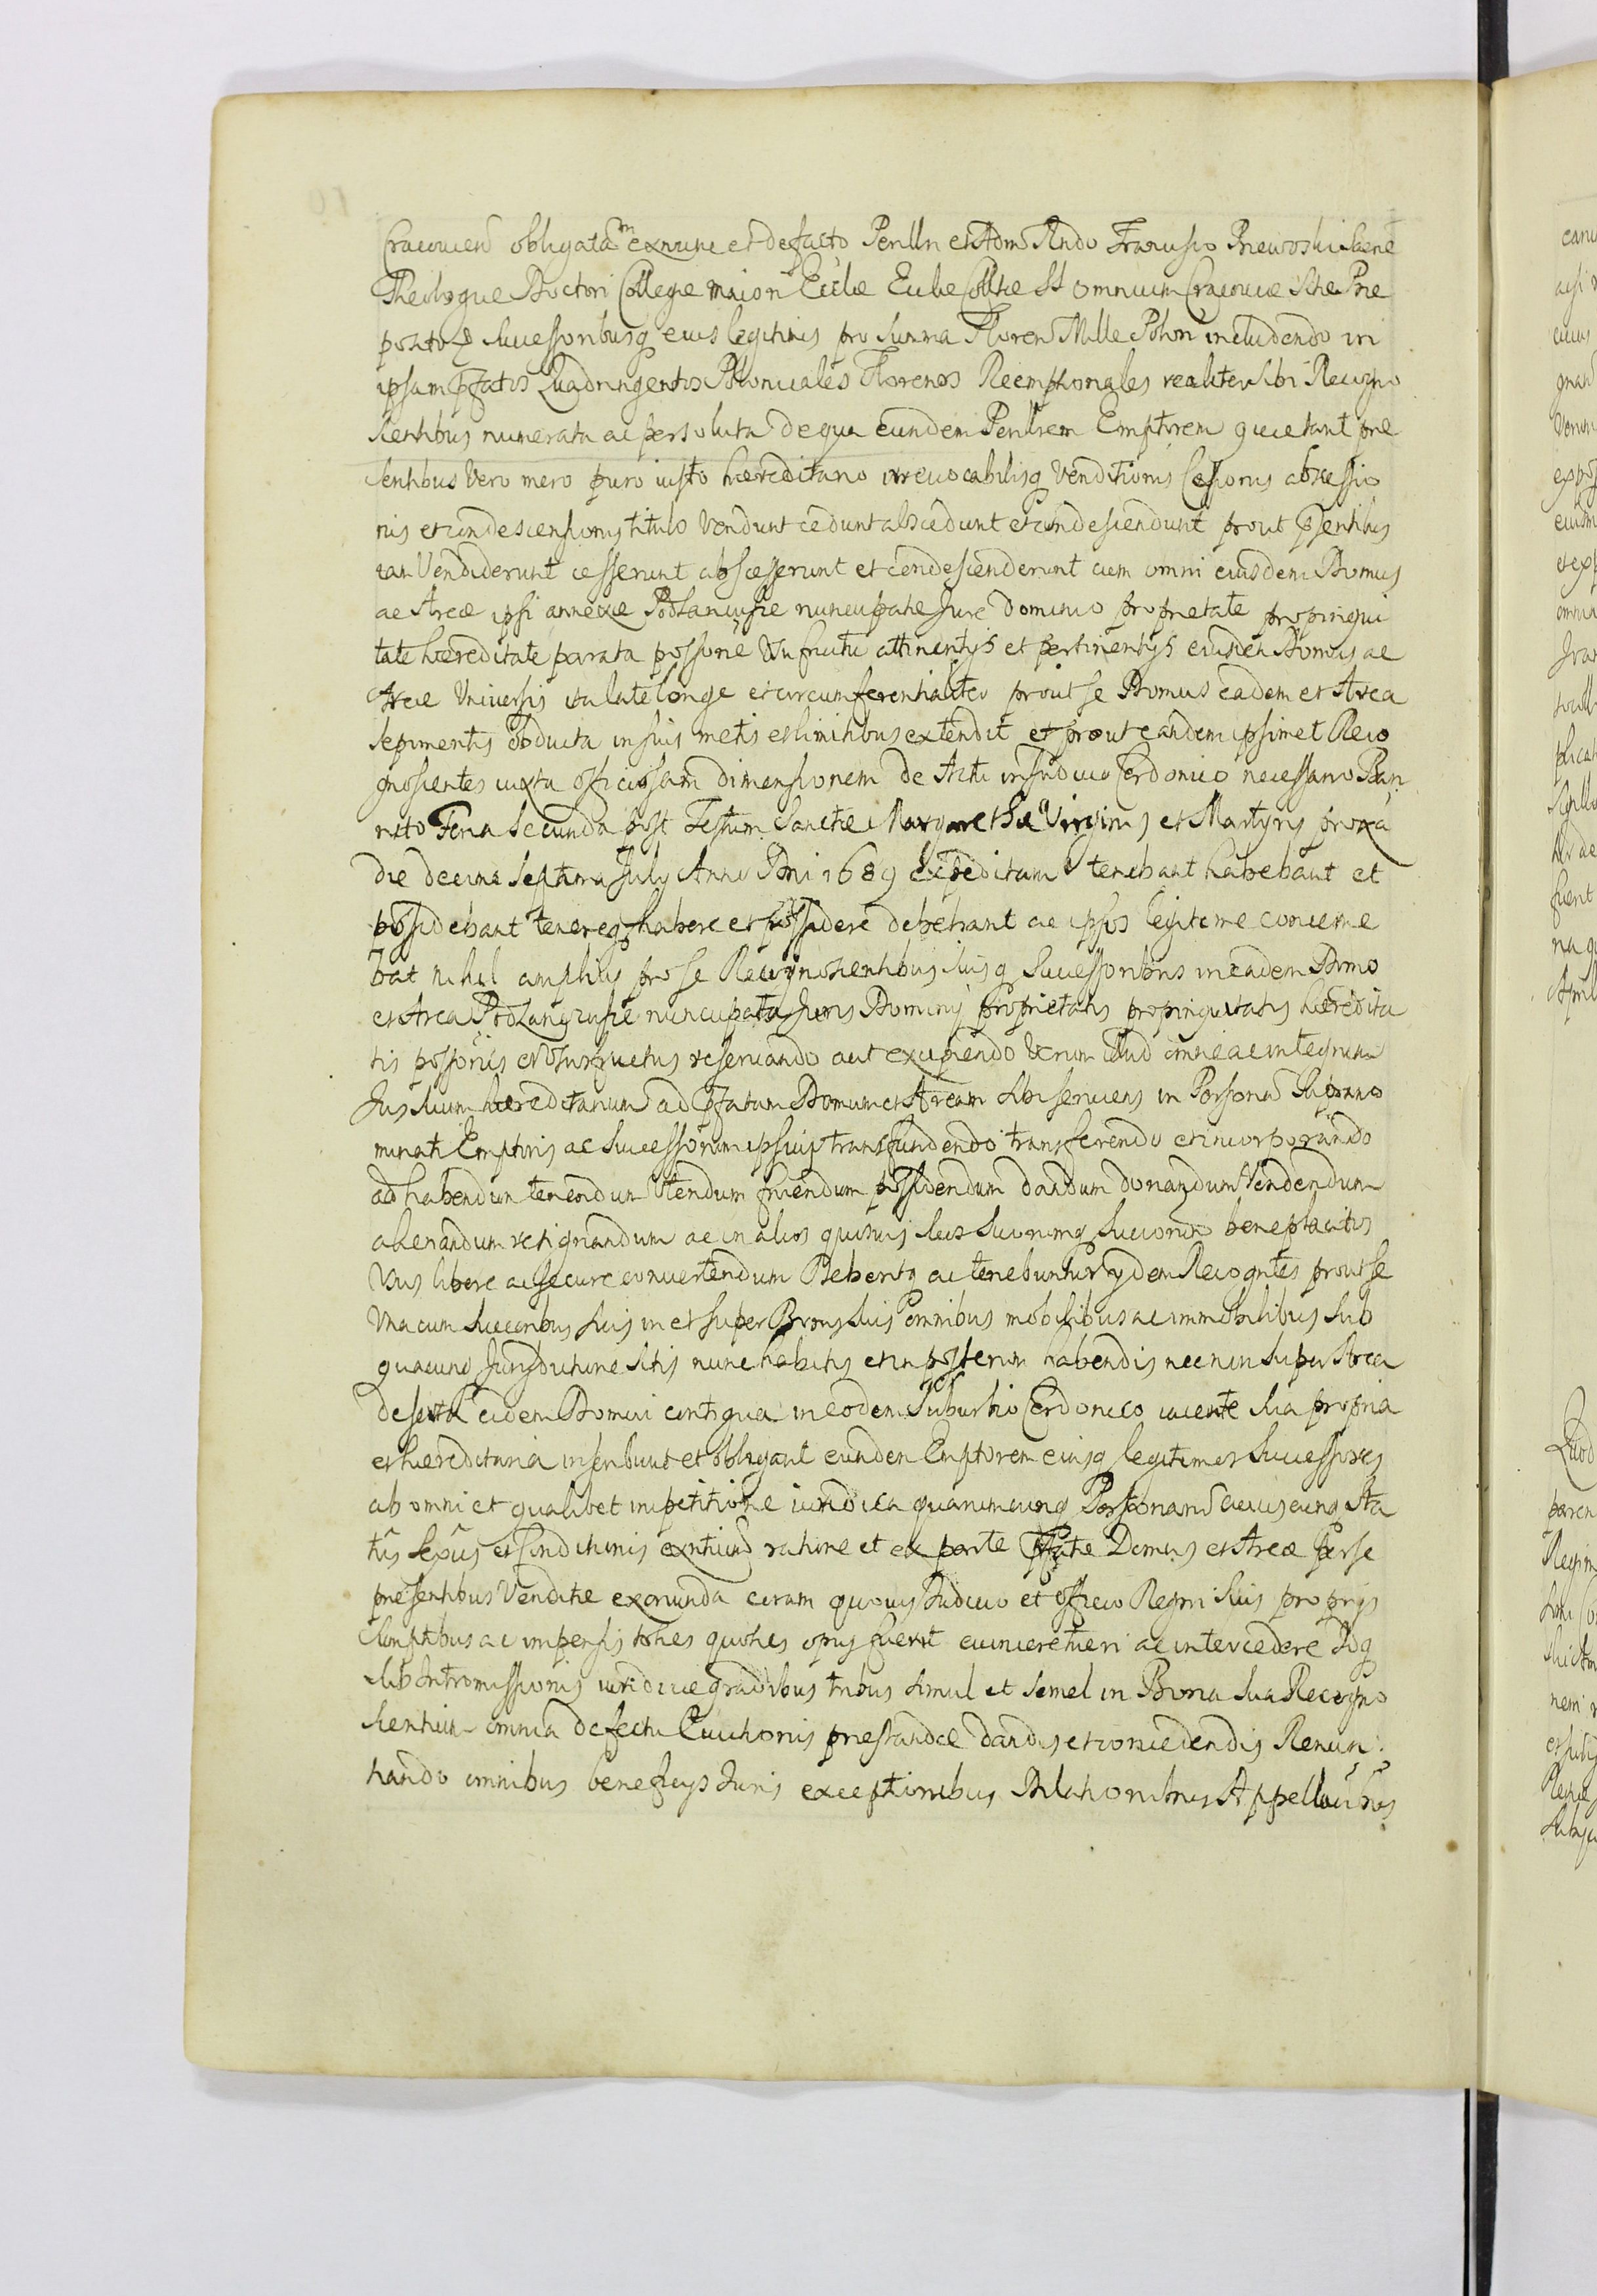 Cracovien obligatam exnunc et defacto Perllri et Adm Rndo Francisco Przewoski Sacrae
Theologiae Doctori Collegae Maiori Ecclae Colltae SS Omnium Cracoviae Scholae Prae
posito Successoribusq eius legitimis pro Summa Floren Mille Polon includendo in
ipsam pfatos Quadringentos Florenos Reemptionales realiter Sibi Recogno
scentibus numerata ac persoluta de qua eundem Perllrem Emptorem quietant prae
sentibus Vero mero puro iusto haereditario irrevocabilisq Venditionis Cessionis abscessio
nis et condescensionis titulo Vendunt cedunt abscedunt et condescendunt prout psentibus
iam Vendiderunt cesserunt abscesserunt et condescenderunt cum omni eiusdem Domus
ac Areae ipsi annexae nuncupatae Jure Dominio proprietate propinqui
tate haereditate parata possone Usufructu attinentijs et pertinentijs eiusdem Domus ac
Areae Universis ita late longe et circumferentialiter prout se Domus eadem et Area
sepimentis obducta in suis metis et limitibus extendit et prout eandem ipsimet Reco
gnoscentes iuxta officiosam dimensionem de Actu in Judicio Cerdonico necessario Ban
nito Feria Secunda post Festum Sanctae Margarethae Virginis et Martyris proxa
die decima Septima July Anno Dni 1689 Expeditam tenebant habebant et
possidebant tenereq habere et possidere debebant ac ipsos legitime concerne
bat nihil amplius pro se Recognoscentibus Suisq Successoribus in eadem Domo
et Area nuncupata Juris Dominij proprietatis propinquitatis haeredita
tis possonis et Ususfructus reservando aut excipiendo Verum illud omne ac integrum
Jus Suum haereditarium ad pfatam Domum et Aream Sibi serviens in Personam Suprano
minati Emptoris ac Successorum ipsius transfundendo transferendo et incorporando
ad habendum tenendum Utendum fruendum possidendum dandum donandum Vendendum
alienandum resignandum ac in alios quosvis Suos Suorumq Succorum beneplacitos
Usus libere ac secure convertendum Debentq ac tenebuntur ydem Recogntes prout se
Una cum Succoribus Suis in et super Bonis Suis omnibus mobilibus ac immobilibus Sub
quacunq Jurisdictione Sitis nunc habitis et in posterum habendis necnon super Area
deserta eidem Domui contigua in eodem Suburbio Cerdonico iacente Sua propria
et haereditaria inscribunt et obligant eundem Emptorem eiusq legitimos Successores
ab omni et qualibet impetitione iuridica quarumcunq Personarum cuiuscunq Sta
tus Sexus et Conditionis exntium ratione et ex parte pfatae Domus et Areae per se
praesentibus Venditae exoriunda coram quovis Judicio et officio Regni Suis proprijs
Sumptibus ac impensis toties quoties opus fuerit evincere tueri ac intercedere Idq
Sub Intromissionis iuridicae gradibus tribus Simul et Semel in Bona Sua Recogno
scentium omnia defectu Evictionis praestandae dandis et concedendis Renun
tiando omnibus beneficys Juris exceptionibus Dilationibus Appellaonibus